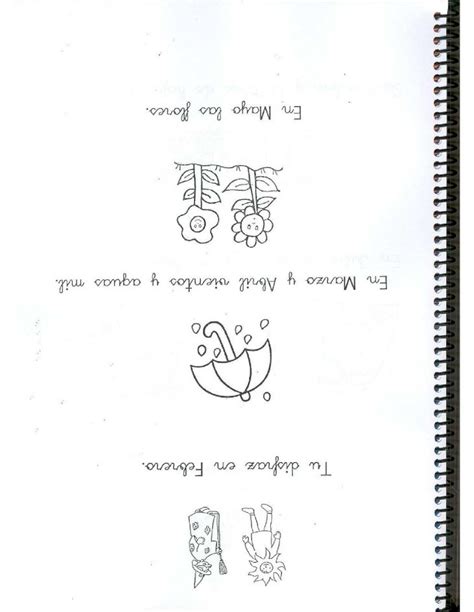 Tu disfraz en Febrero.
En Marzo y Abril vientos y aguas mil.
En Mayo las flores.